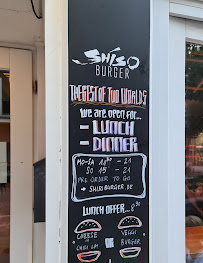 SHISO
BURGER
THE BEST OF TWO WORLDS
WE ARE OPEN FOR...
- LUNCH
- DINNER
MO-SA
SO 15 - 21
PRE ORDER TO GO
SHISOBURGER.DE
LUNCH OFFER...
CHEESE
VEGGI
CHILI
OR
BURGER